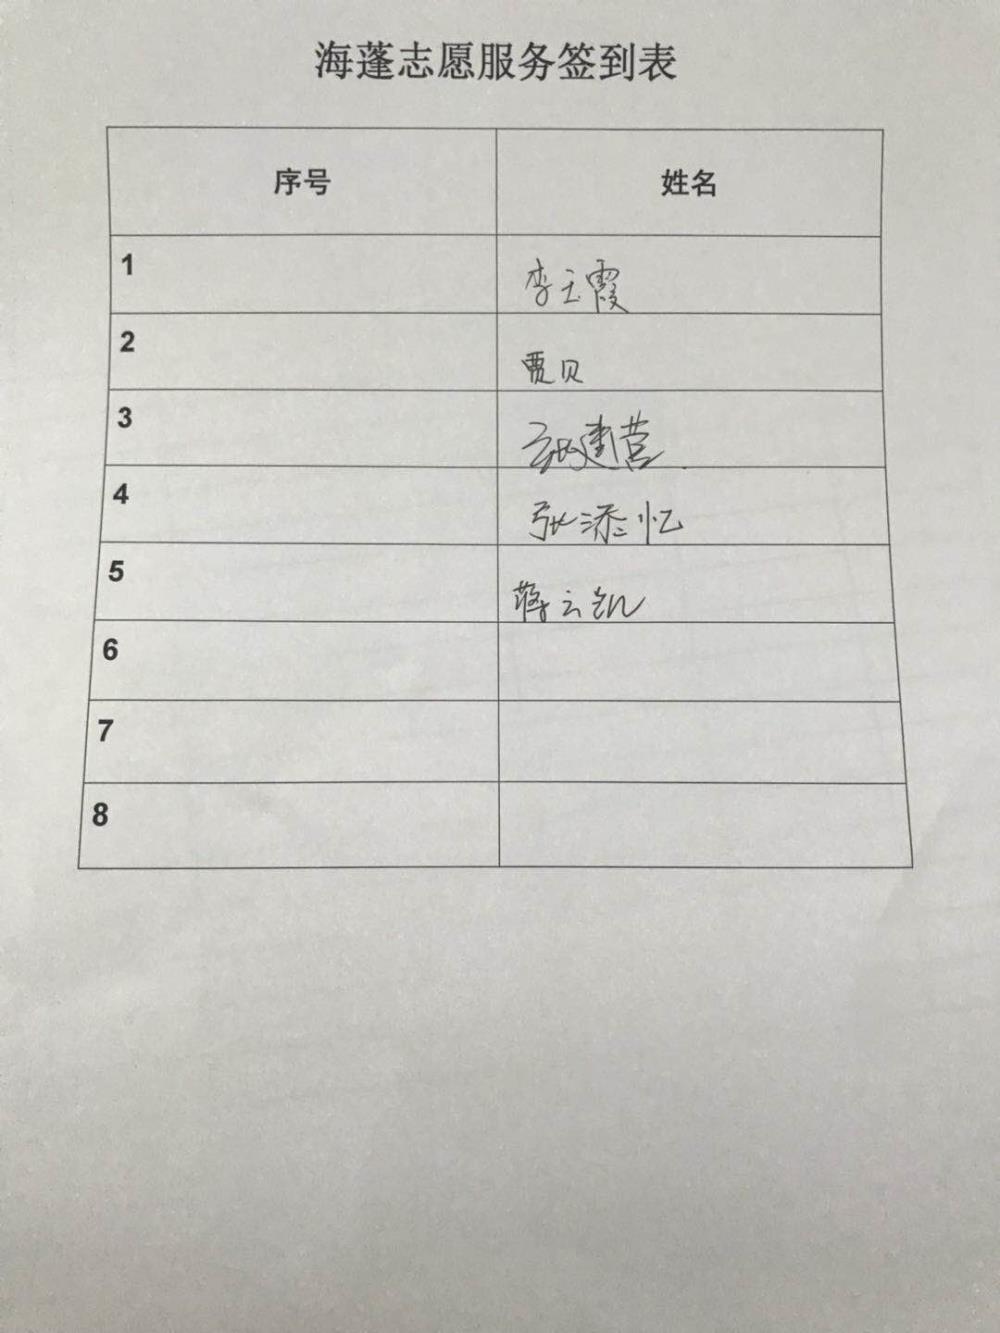 海蓬志愿服务签到表
序号 姓名
1 李玉霞
2 贾贝
3 张建营
4 张添忆
5 蒋云凯
6
7
8